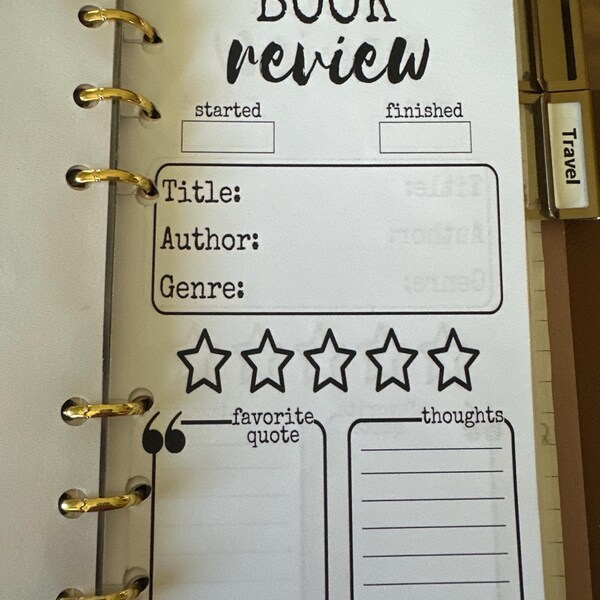 BOOK
review
started finished
Title:
Author:
Genre:
favorite
quote
thoughts
Travel